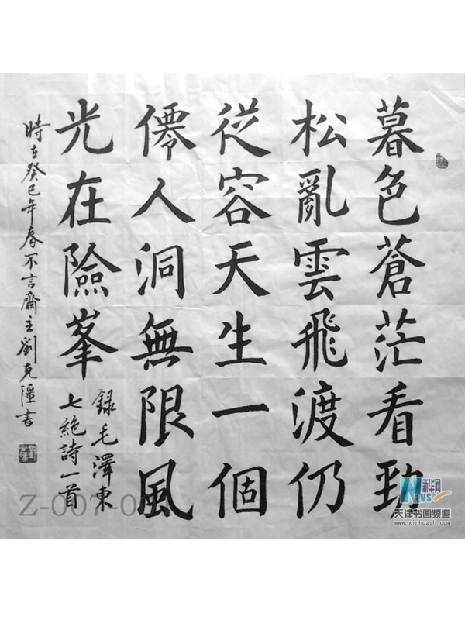 暮色蒼茫看勁
松亂雲飛渡仍
從容天生一個
僊人洞無限風
光在險峯
錄毛澤東
七絶詩一首
時在癸巳年春不言齋主劉克彊書
Z-007-0
NEWS
新华网
天津书画频道